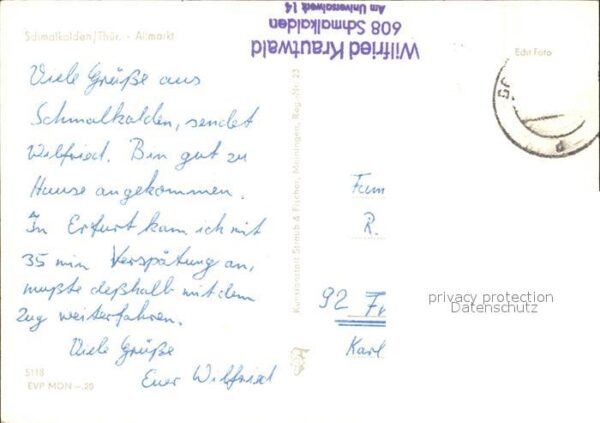 Schmalkalden/Thür. - Altmarkt
Wilfried Krautwald
608 Schmalkalden
Am Universalwerk 14
Echt Foto
Viele Grüße aus
Schmalkalden, sendet
Wilfried. Bin gut zu
Hause angekommen.
In Erfurt kam ich mit
35 min Verspätung an,
mußte deßhalb mit dem
Zug weiterfahren.
Viele Grüße
Euer Wilfried
5118
EVP MDN -.20
Kunstanstalt Straub & Fischer, Meiningen, Reg.-Nr. 23
Fam
R.
92 Fr
Karl
privacy protection
Datenschutz